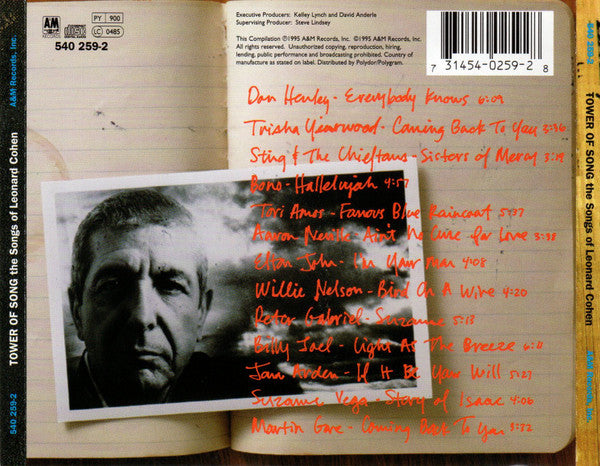 A&M RECORDS
COMPACT disc DIGITAL AUDIO
PY 900
LC 0485
540 259-2
Executive Producers: Kelley Lynch and David Anderle
Supervising Producer: Steve Lindsey
This Compilation ℗1995 A&M Records, Inc. ©1995 A&M Records, Inc.
All rights reserved. Unauthorized copying, reproduction, hiring,
lending, public performance and broadcasting prohibited. Country of
manufacture as stated on label. Distributed by Polydor/Polygram.
7 31454-0259-2 8
Dan Henley - Everybody Knows 6:09
Trisha Yearwood - Coming Back To You 3:36
Sting & The Chieftans - Sisters of Mercy 3:19
Bono - Hallelujah 4:57
Tori Amos - Famous Blue Raincoat 5:37
Aaron Neville - Ain't No Cure for Love 3:38
Elton John - I'm Your Man 4:08
Willie Nelson - Bird On A Wire 4:20
Peter Gabriel - Suzanne 5:13
Billy Joel - Light As The Breeze 6:11
Jann Arden - If It Be Your Will 5:27
Suzanne Vega - Story of Isaac 4:06
Martin Gore - Coming Back To You 3:32
540 259-2 TOWER OF SONG the Songs of Leonard Cohen A&M Records, Inc.
540 259-2 TOWER OF SONG the Songs of Leonard Cohen A&M Records, Inc.